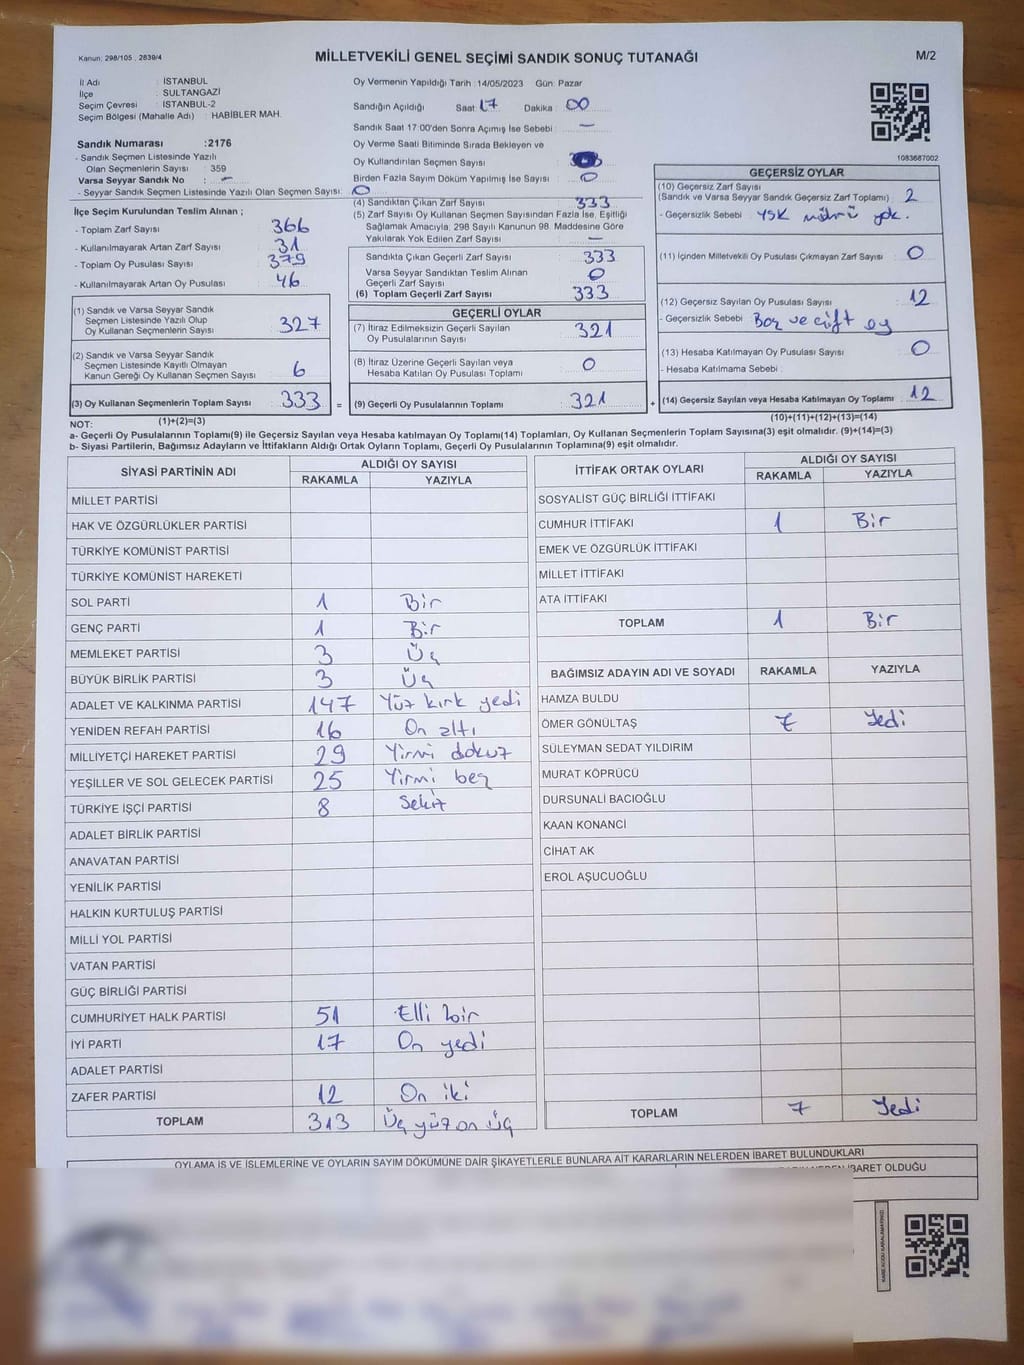 Kanun: 298/105 , 2839/4
MİLLETVEKİLİ GENEL SEÇİMİ SANDIK SONUÇ TUTANAĞI
M/2
İl Adı : İSTANBUL
İlçe : SULTANGAZİ
Seçim Çevresi : İSTANBUL-2
Seçim Bölgesi (Mahalle Adı) : HABİBLER MAH.
Sandık Numarası :2176
- Sandık Seçmen Listesinde Yazılı
Olan Seçmenlerin Sayısı : 359
Varsa Seyyar Sandık No : -
- Seyyar Sandık Seçmen Listesinde Yazılı Olan Seçmen Sayısı: 0
Oy Vermenin Yapıldığı Tarih :14/05/2023 Gün: Pazar
Sandığın Açıldığı Saat: 17 Dakika : 00
Sandık Saat 17:00'den Sonra Açımış İse Sebebi : -
Oy Verme Saati Bitiminde Sırada Bekleyen ve
Oy Kullandırılan Seçmen Sayısı :
Birden Fazla Sayım Döküm Yapılmış İse Sayısı : 0
1083687002
İlçe Seçim Kurulundan Teslim Alınan ;
- Toplam Zarf Sayısı 366
- Kullanılmayarak Artan Zarf Sayısı 31
- Toplam Oy Pusulası Sayısı 379
- Kullanılmayarak Artan Oy Pusulası 46
(1) Sandık ve Varsa Seyyar Sandık
Seçmen Listesinde Yazılı Olup
Oy Kullanan Seçmenlerin Sayısı 327
(2) Sandık ve Varsa Seyyar Sandık
Seçmen Listesinde Kayıtlı Olmayan
Kanun Gereği Oy Kullanan Seçmen Sayısı 6
(3) Oy Kullanan Seçmenlerin Toplam Sayısı 333 =
(1)+(2)=(3)
(4) Sandıktan Çıkan Zarf Sayısı 333
(5) Zarf Sayısı Oy Kullanan Seçmen Sayısından Fazla İse, Eşitliği
Sağlamak Amacıyla, 298 Sayılı Kanunun 98. Maddesine Göre
Yakılarak Yok Edilen Zarf Sayısı : -
Sandıkta Çıkan Geçerli Zarf Sayısı 333
Varsa Seyyar Sandıktan Teslim Alınan
Geçerli Zarf Sayısı 0
(6) Toplam Geçerli Zarf Sayısı 333
GEÇERLİ OYLAR
(7) İtiraz Edilmeksizin Geçerli Sayılan
Oy Pusulalarının Sayısı 321
(8) İtiraz Üzerine Geçerli Sayılan veya
Hesaba Katılan Oy Pusulası Toplamı 0
(9) Geçerli Oy Pusulalarının Toplamı 321 +
GEÇERSİZ OYLAR
(10) Geçersiz Zarf Sayısı
(Sandık ve Varsa Seyyar Sandık Geçersiz Zarf Toplamı) 2
- Geçersizlik Sebebi : YSK mührü yok.
(11) İçinden Milletvekili Oy Pusulası Çıkmayan Zarf Sayısı 0
(12) Geçersiz Sayılan Oy Pusulası Sayısı 12
- Geçersizlik Sebebi : Boş ve çift oy
(13) Hesaba Katılmayan Oy Pusulası Sayısı 0
- Hesaba Katılmama Sebebi :
(14) Geçersiz Sayılan veya Hesaba Katılmayan Oy Toplamı 12
(10)+(11)+(12)+(13)=(14)
NOT:
a- Geçerli Oy Pusulalarının Toplamı(9) ile Geçersiz Sayılan veya Hesaba katılmayan Oy Toplamı(14) Toplamları, Oy Kullanan Seçmenlerin Toplam Sayısına(3) eşit olmalıdır. (9)+(14)=(3)
b- Siyasi Partilerin, Bağımsız Adayların ve İttifakların Aldığı Ortak Oyların Toplamı, Geçerli Oy Pusulalarının Toplamına(9) eşit olmalıdır.
SİYASİ PARTİNİN ADI ALDIĞI OY SAYISI
RAKAMLA YAZIYLA
MİLLET PARTİSİ
HAK VE ÖZGÜRLÜKLER PARTİSİ
TÜRKİYE KOMÜNİST PARTİSİ
TÜRKİYE KOMÜNİST HAREKETİ
SOL PARTİ 1 Bir
GENÇ PARTİ 1 Bir
MEMLEKET PARTİSİ 3 Üç
BÜYÜK BİRLİK PARTİSİ 3 Üç
ADALET VE KALKINMA PARTİSİ 147 Yüz kırk yedi
YENİDEN REFAH PARTİSİ 16 On altı
MİLLİYETÇİ HAREKET PARTİSİ 29 Yirmi dokuz
YEŞİLLER VE SOL GELECEK PARTİSİ 25 Yirmi beş
TÜRKİYE İŞÇİ PARTİSİ 8 Sekiz
ADALET BİRLİK PARTİSİ
ANAVATAN PARTİSİ
YENİLİK PARTİSİ
HALKIN KURTULUŞ PARTİSİ
MİLLİ YOL PARTİSİ
VATAN PARTİSİ
GÜÇ BİRLİĞİ PARTİSİ
CUMHURİYET HALK PARTİSİ 51 Elli bir
İYİ PARTİ 17 On yedi
ADALET PARTİSİ
ZAFER PARTİSİ 12 On iki
TOPLAM 313 Üç yüz on üç
İTTİFAK ORTAK OYLARI ALDIĞI OY SAYISI
RAKAMLA YAZIYLA
SOSYALİST GÜÇ BİRLİĞİ İTTİFAKI
CUMHUR İTTİFAKI 1 Bir
EMEK VE ÖZGÜRLÜK İTTİFAKI
MİLLET İTTİFAKI
ATA İTTİFAKI
TOPLAM 1 Bir
BAĞIMSIZ ADAYIN ADI VE SOYADI RAKAMLA YAZIYLA
HAMZA BULDU
ÖMER GÖNÜLTAŞ 7 Yedi
SÜLEYMAN SEDAT YILDIRIM
MURAT KÖPRÜCÜ
DURSUNALİ BACIOĞLU
KAAN KONANCİ
CİHAT AK
EROL AŞUCUOĞLU
TOPLAM 7 Yedi
OYLAMA İŞ VE İŞLEMLERİNE VE OYLARIN SAYIM DÖKÜMÜNE DAİR ŞİKAYETLERLE BUNLARA AİT KARARLARIN NELERDEN İBARET BULUNDUKLARI
İBARET OLDUĞU